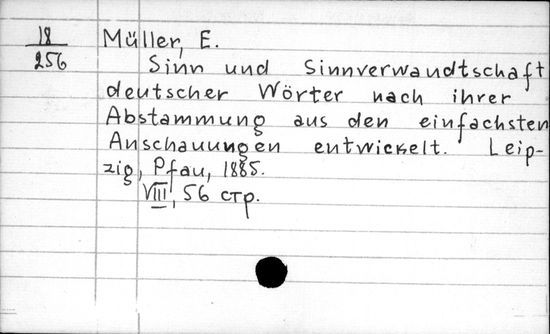 18
256
Müller, E.
Sinn und Sinnverwandtschaft
deutscher Wörter nach ihrer
Abstammung aus den einfachsten
Anschauungen entwickelt. Leip-
zig, Pfau, 1885.
VIII, 56 стр.